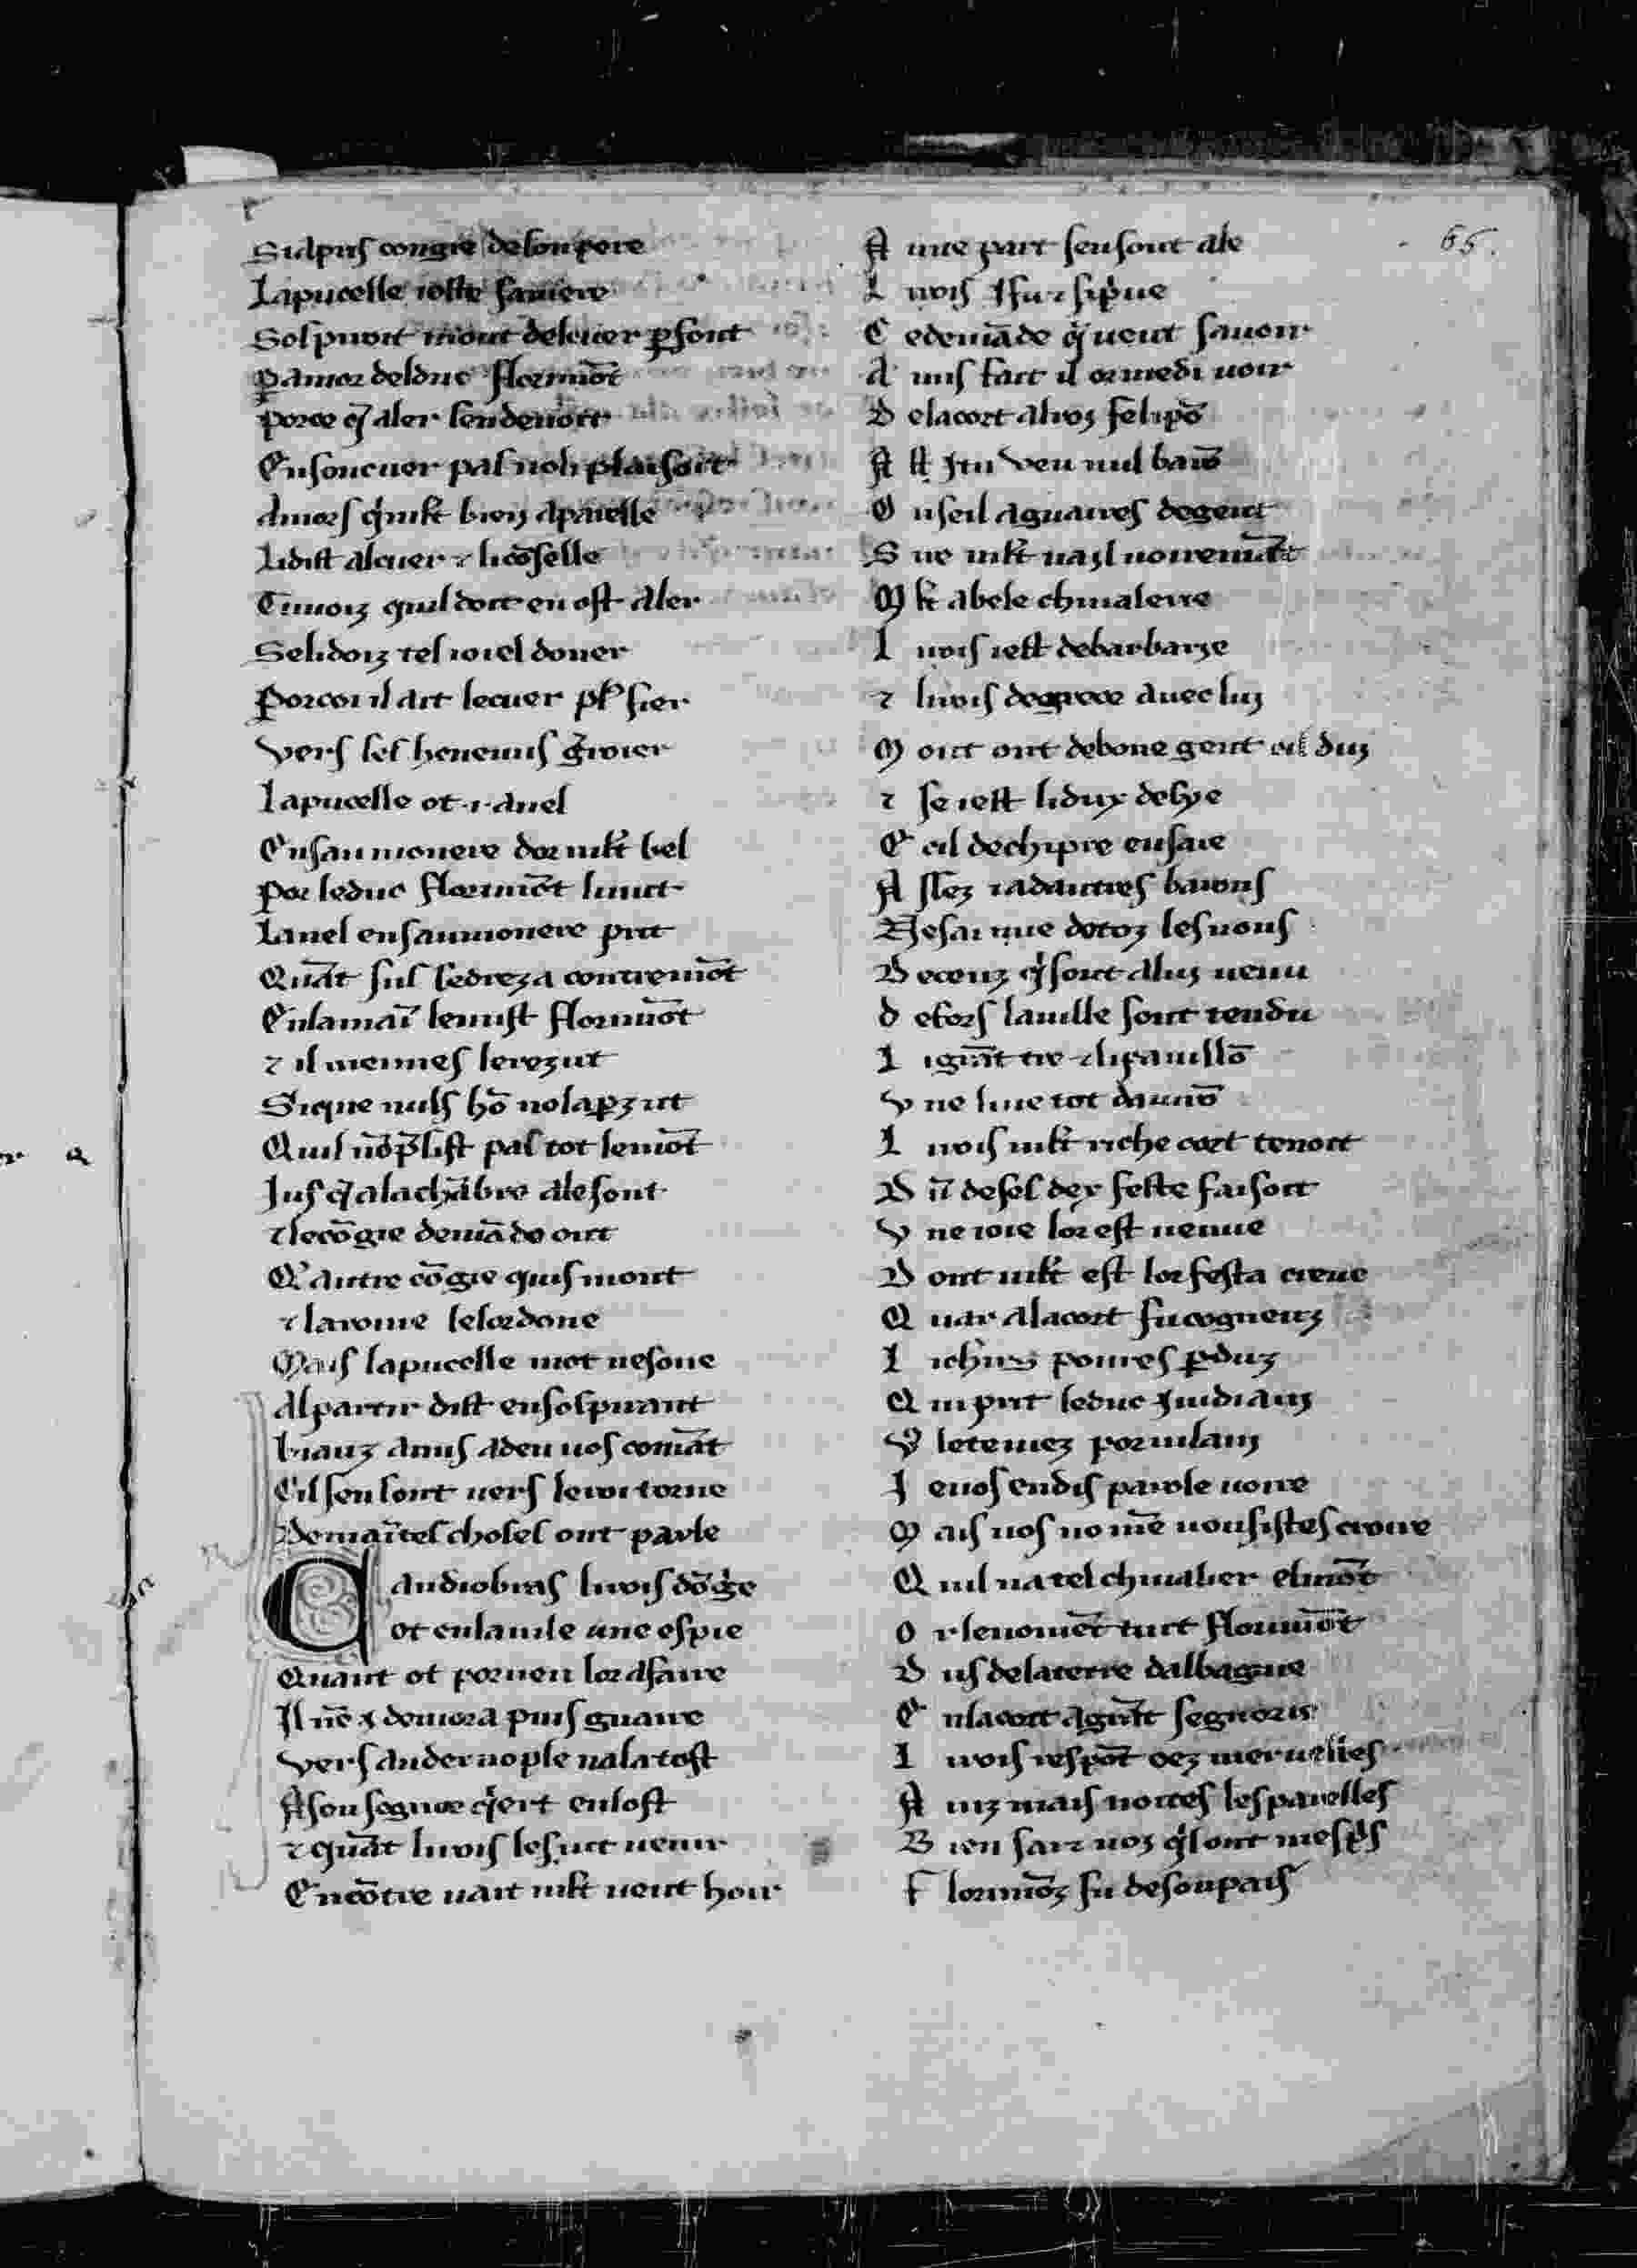 Sia pris congie de son pere
La pucelle ioste sa mere
Sospiroit mout del cuer ꝑfont
ꝑ amor del duc florimōt
Por ce q̄ aler sen denoit
En son cuer pas no li plaisoit
Amors q̍ mlt̄ bien apareille
Li dist al cuer ⁊ li cōselle
Timoiz quil doit en ost aler
Se li doiz tel ioiel doner
Por coi il ait le cuer pl᷒ fier
Vers ses henemis gr̄oier
La pucelle ot .i. anel
En saumonere dor mlt̄ bel
Por le duc florimōt li mist
Lanel en saumonere prit
Quāt sus se dreza contremōt
En la maī le mist florimōt
⁊ il meimes le rezut
Si que nuls hō no laꝑzut
Quil nō ꝑsist pas tot le mōt
Jusq̄ a la chābre ale sont
⁊ le cōgie demāde ont
Q̍ autre cōgie quis mont
⁊ la roine le lor done
Mais la pucelle mot ne sone
Al partir dist en sospirant
biauz amis a deu uos comāt
Cil sen sont uers le roi torne
De maītes choses ont parle
Candiobras li rois dōg̍e
ot en la uile une espie
Quant ot por ueu lor afaire
Il nē x demora puis guaire
Vers andernople nala tost
A son segnor q̍ ert en lost
⁊ quāt li rois le suit uenir
Encōtre uait mlt̄ ueut hoir
A une part sen sont ale
L i rois
C e demāde q̍ ueut sauoir
A mis fait il or me di uoir
D e la cort al roz felipō
A st̄ itu veu nul barō
O u seil a guaires de gent
S ire mlt̄ uazl uoiremāt
M lt̄ a bele chiualerie
L i rois iest de barbarze
⁊ li rois de grece auec luz
M out ont de bone gent cil duz
⁊ se iest li dux de sye
E cil de chipre en saie
A ssez i a dautres barons
Ne sai mie de toz les nons
D e ceuz q̍ sont a luz uenu
d efors la uille sont tendu
L i grāt tre ⁊ li pauillō
V ne liue tot dauirō
L i rois mlt̄ riche cort tenoit
D ū de sel dex feste faisoit
V ne ioie lor est uenue
D ont mlt̄ est lor festa creue
Q uar a la cort fu cogneuz
L i poures ꝑduz
Q ui prit le duc
V᷒ le teniez por uilaiz
J e uos en dis parole uoire
M ais uos no mē uousistes croire
Q uil na tel chiualier el mōt
O r le nomēt tuit florimōt
D us de la terre dalbagne
E n la cort a grāt segnorie
L i rois respōt oez merueilles
A inz mais noites les pareilles
B ien saiz uoz q̍ sont mesp̍s
F lorimōz fu de son pais
65.